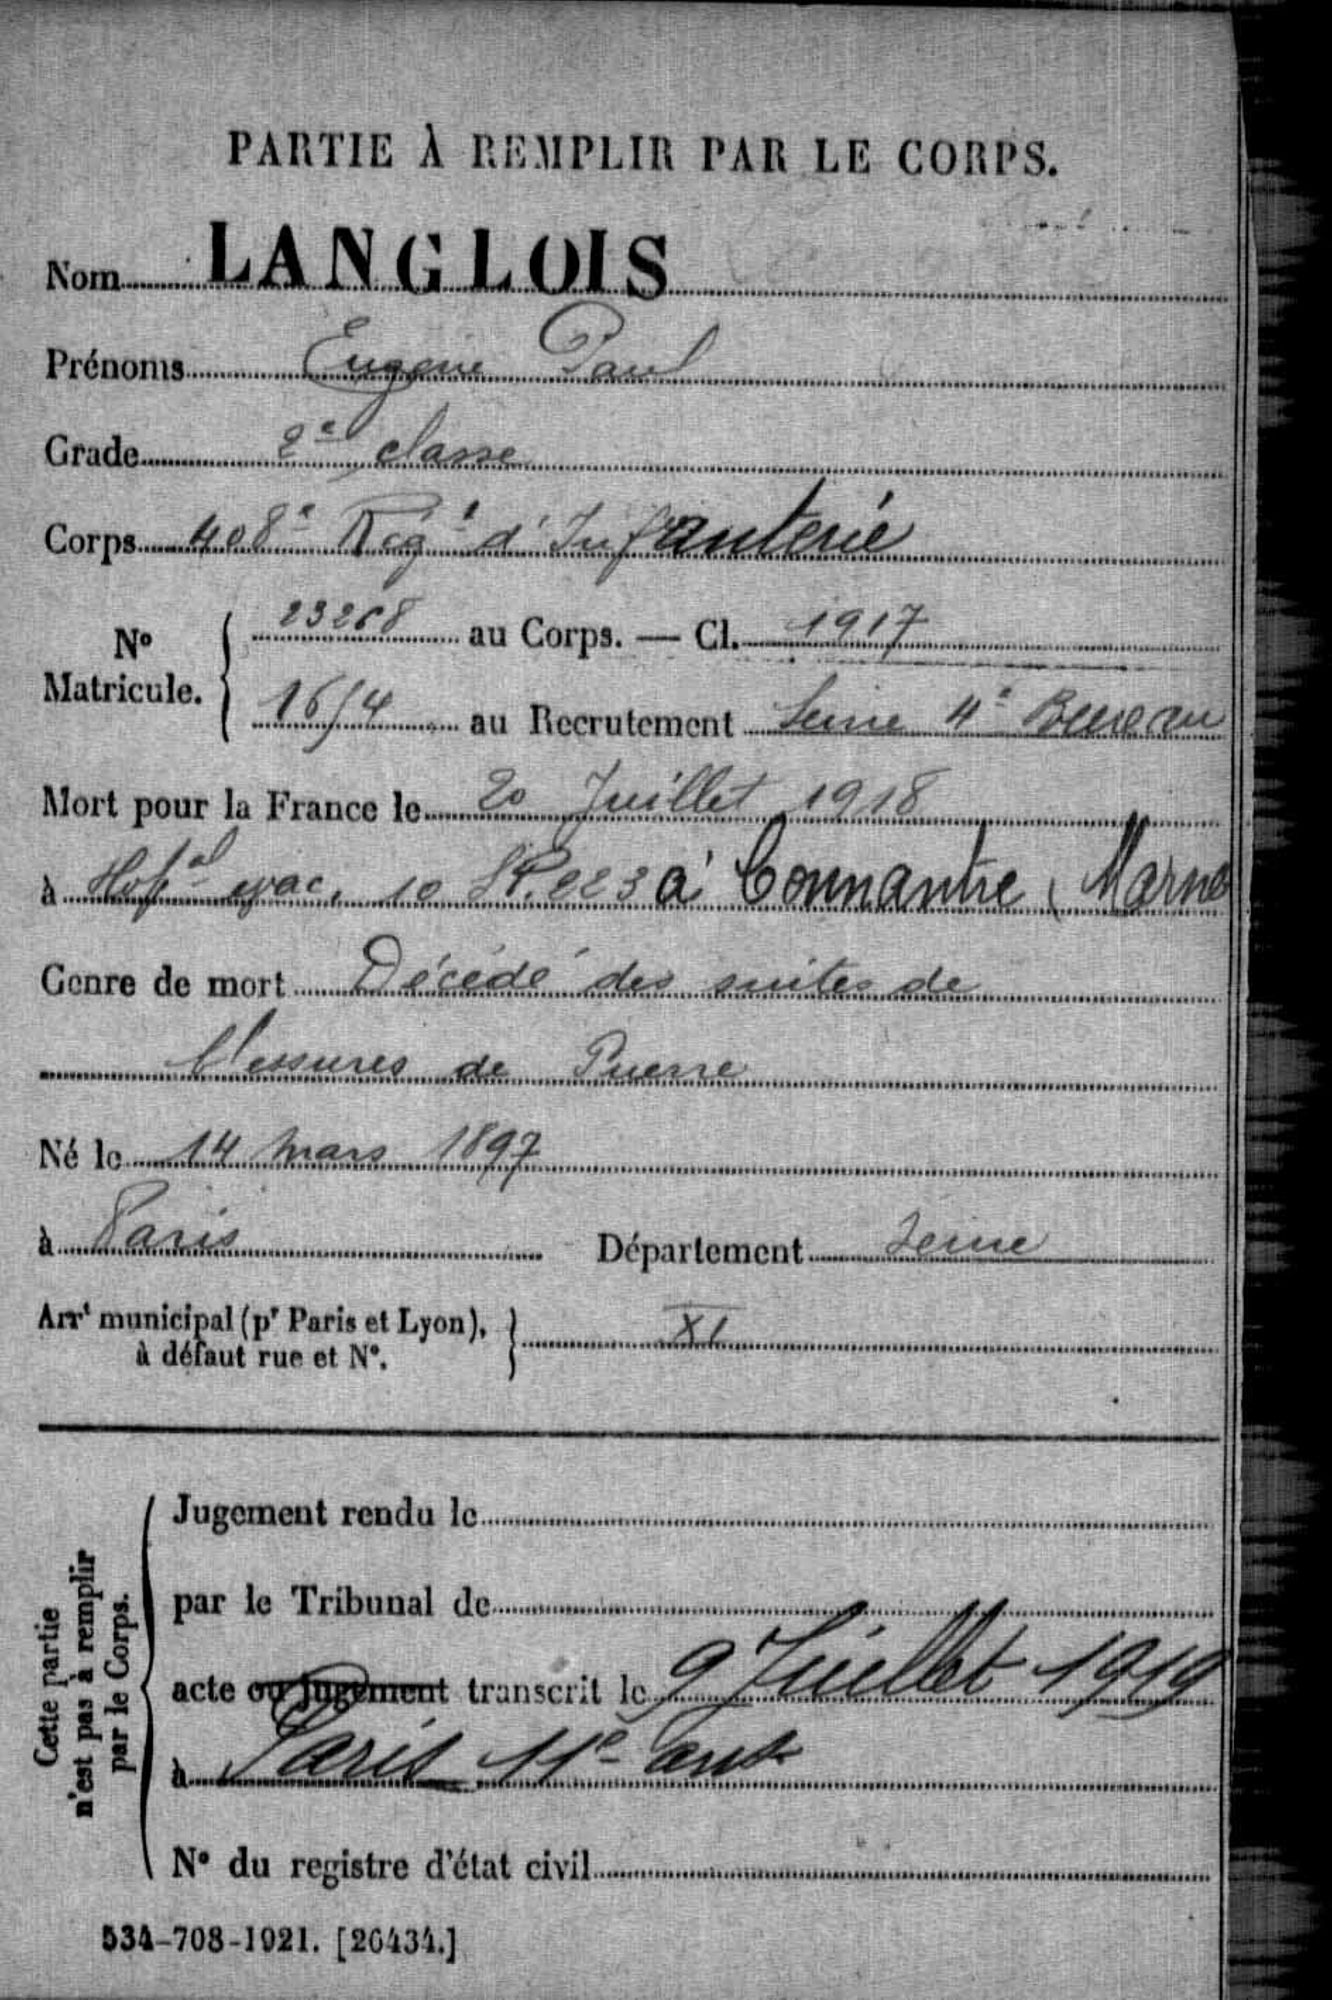 PARTIE À REMPLIR PAR LE CORPS.
Nom LANGLOIS
Prénoms Eugène Paul
Grade 2e classe
Corps 408e Régt d'Infanterie
No Matricule. 23268 au Corps. — Cl. 1917
16/4 au Recrutement Seine 4e Bureau
Mort pour la France le 20 Juillet 1918
à Hopal evac. 10 SP. 223 à Connantre (Marne
Genre de mort Décédé des suites de
blessures de Guerre
Né le 14 mars 1897
à Paris Département Seine
Arrt municipal (pr Paris et Lyon), à défaut rue et No. XI
Cette partie n'est pas à remplir par le Corps.
Jugement rendu le
par le Tribunal de
acte ou jugement transcrit le 9 Juillet 1919
à Paris 11e arrt
No du registre d'état civil
534-708-1921. [26434.]